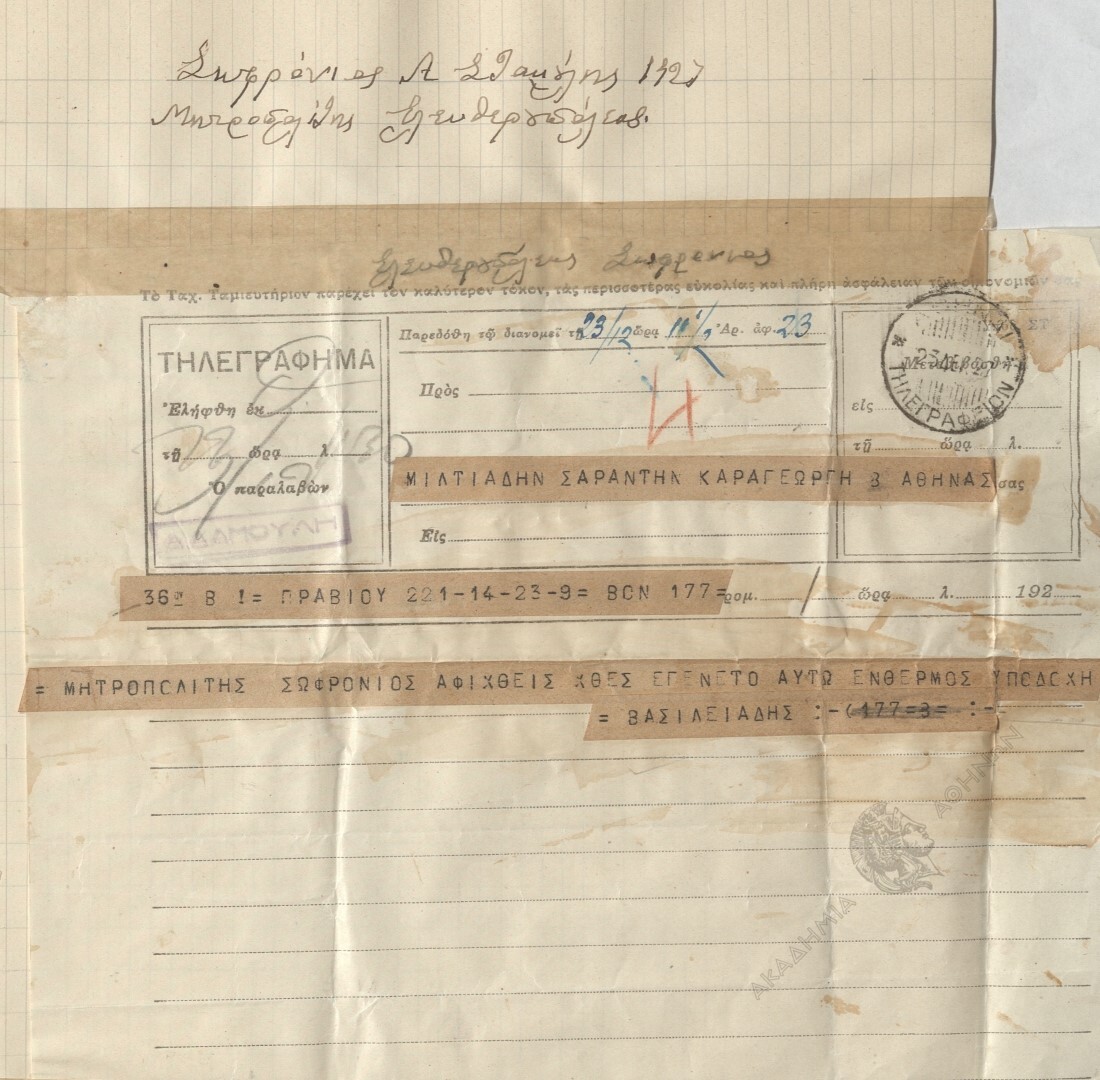 Σωφρόνιος Α Σταμούλης 1927
Μητροπολίτης Ελευθερουπόλεως.
Ελευθερουπόλεως Σωφρόνιος
Τὸ Ταχ. Ταμιευτήριον παρέχει τὸν καλύτερον τόκον, τὰς περισσοτέρας εὐκολίας καὶ πλήρη ἀσφάλειαν τῶν οἰκονομιῶν σας
ΤΗΛΕΓΡΑΦΗΜΑ
Ἐλήφθη ἐκ
τῇ ὥρᾳ λ.
Ὁ παραλαβὼν
Παρεδόθη τῷ διανομεῖ τῇ 23/12 ὥρᾳ 11 1/2 Ἀρ. ἀφ. 23
Πρὸς
ΜΙΛΤΙΑΔΗΝ ΣΑΡΑΝΤΗΝ ΚΑΡΑΓΕΩΡΓΗ 3 ΑΘΗΝΑΣ σας
Εἰς
Μετεβιβάσθη
εἰς
τῇ ὥρᾳ λ.
ΤΗΛΕΓΡΑΦΕΙΟΝ
36ον Β != ΠΡΑΒΙΟΥ 221-14-23-9= ΒΟΝ 177= ρομ. / ὥρᾳ λ. 192
= ΜΗΤΡΟΠΟΛΙΤΗΣ ΣΩΦΡΟΝΙΟΣ ΑΦΙΧΘΕΙΣ ΧΘΕΣ ΕΓΕΝΕΤΟ ΑΥΤΩ ΕΝΘΕΡΜΟΣ ΥΠΟΔΟΧΗ
= ΒΑΣΙΛΕΙΑΔΗΣ :-(177=3= :-
ΑΚΑΔΗΜΙΑ ΑΘΗΝΩΝ